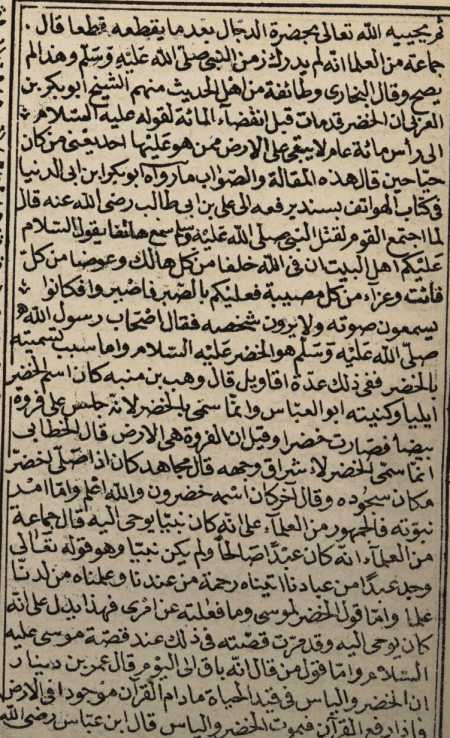 ثم يحييه الله تعالى بحضرة الدجال بعد ما يقطعه قطعا قال
جماعة من العلما انه لم يدرك زمن النبي صلى الله عليه وسلم وهذا لم
يصح وقال البخارى وطائفة من اهل الحديث منهم الشيخ ابو بكر بن
العربى ان الخضر قد مات قبل انقضاء المائة لقوله عليه السلام
الى رأس مائة عام لا يبقى على الارض ممن هو عليها احد يعنى من كان
حيا حين قال هذه المقالة والصواب ما رواه ابو بكر ابن ابى الدنيا
فى كتاب الهواتف بسند يرفعه الى على بن ابى طالب رضى الله عنه قال
لما اجتمع القوم لقتل النبى صلى الله عليه وسلم سمع هاتفا يقول السلام
عليكم اهل البيت ان فى الله خلفا من كل هالك وعوضا من كل
فائت وعزاء من كل مصيبة فعليكم بالصبر فاصبروا فكانوا
يسمعون صوته ولا يرون شخصه فقال اصحاب رسول الله
صلى الله عليه وسلم هو الخضر عليه السلام واما سبب تسميته
بالخضر ففى ذلك عدة اقاويل قال وهب بن منبه كان اسم الخضر
ايليا وكنيته ابو العباس وانما سمى بالخضر لانه جلس على فروة
بيضا فصارت خضرا وقيل ان الفروة هى الارض قال الخطابى
انما سمى الخضر لاشراق وجهه قال مجاهد كان اذا صلى اخضر
مكان سجوده وقال آخر كان اسمه خضرون والله اعلم واما امر
نبوته فالجمهور من العلماء على انه كان نبيا يوحى اليه قال جماعة
من العلماء انه كان عبدا صالحا ولم يكن نبيا وهو قوله تعالى
وجد عبدا من عبادنا اتيناه رحمة من عندنا وعلمناه من لدنا
علما واما قول الخضر لموسى وما فعلته عن امرى فهذا يدل على انه
كان يوحى اليه وقد مرت قصته فى ذلك عند قصة موسى عليه
السلام واما قول من قال انه باق الى اليوم قال عمر بن دينار
ان الخضر والياس فى قيد الحياة ما دام القرآن موجودا فى الارض
واذا رفع القرآن فيموت الخضر والياس قال ابن عباس رضى الله